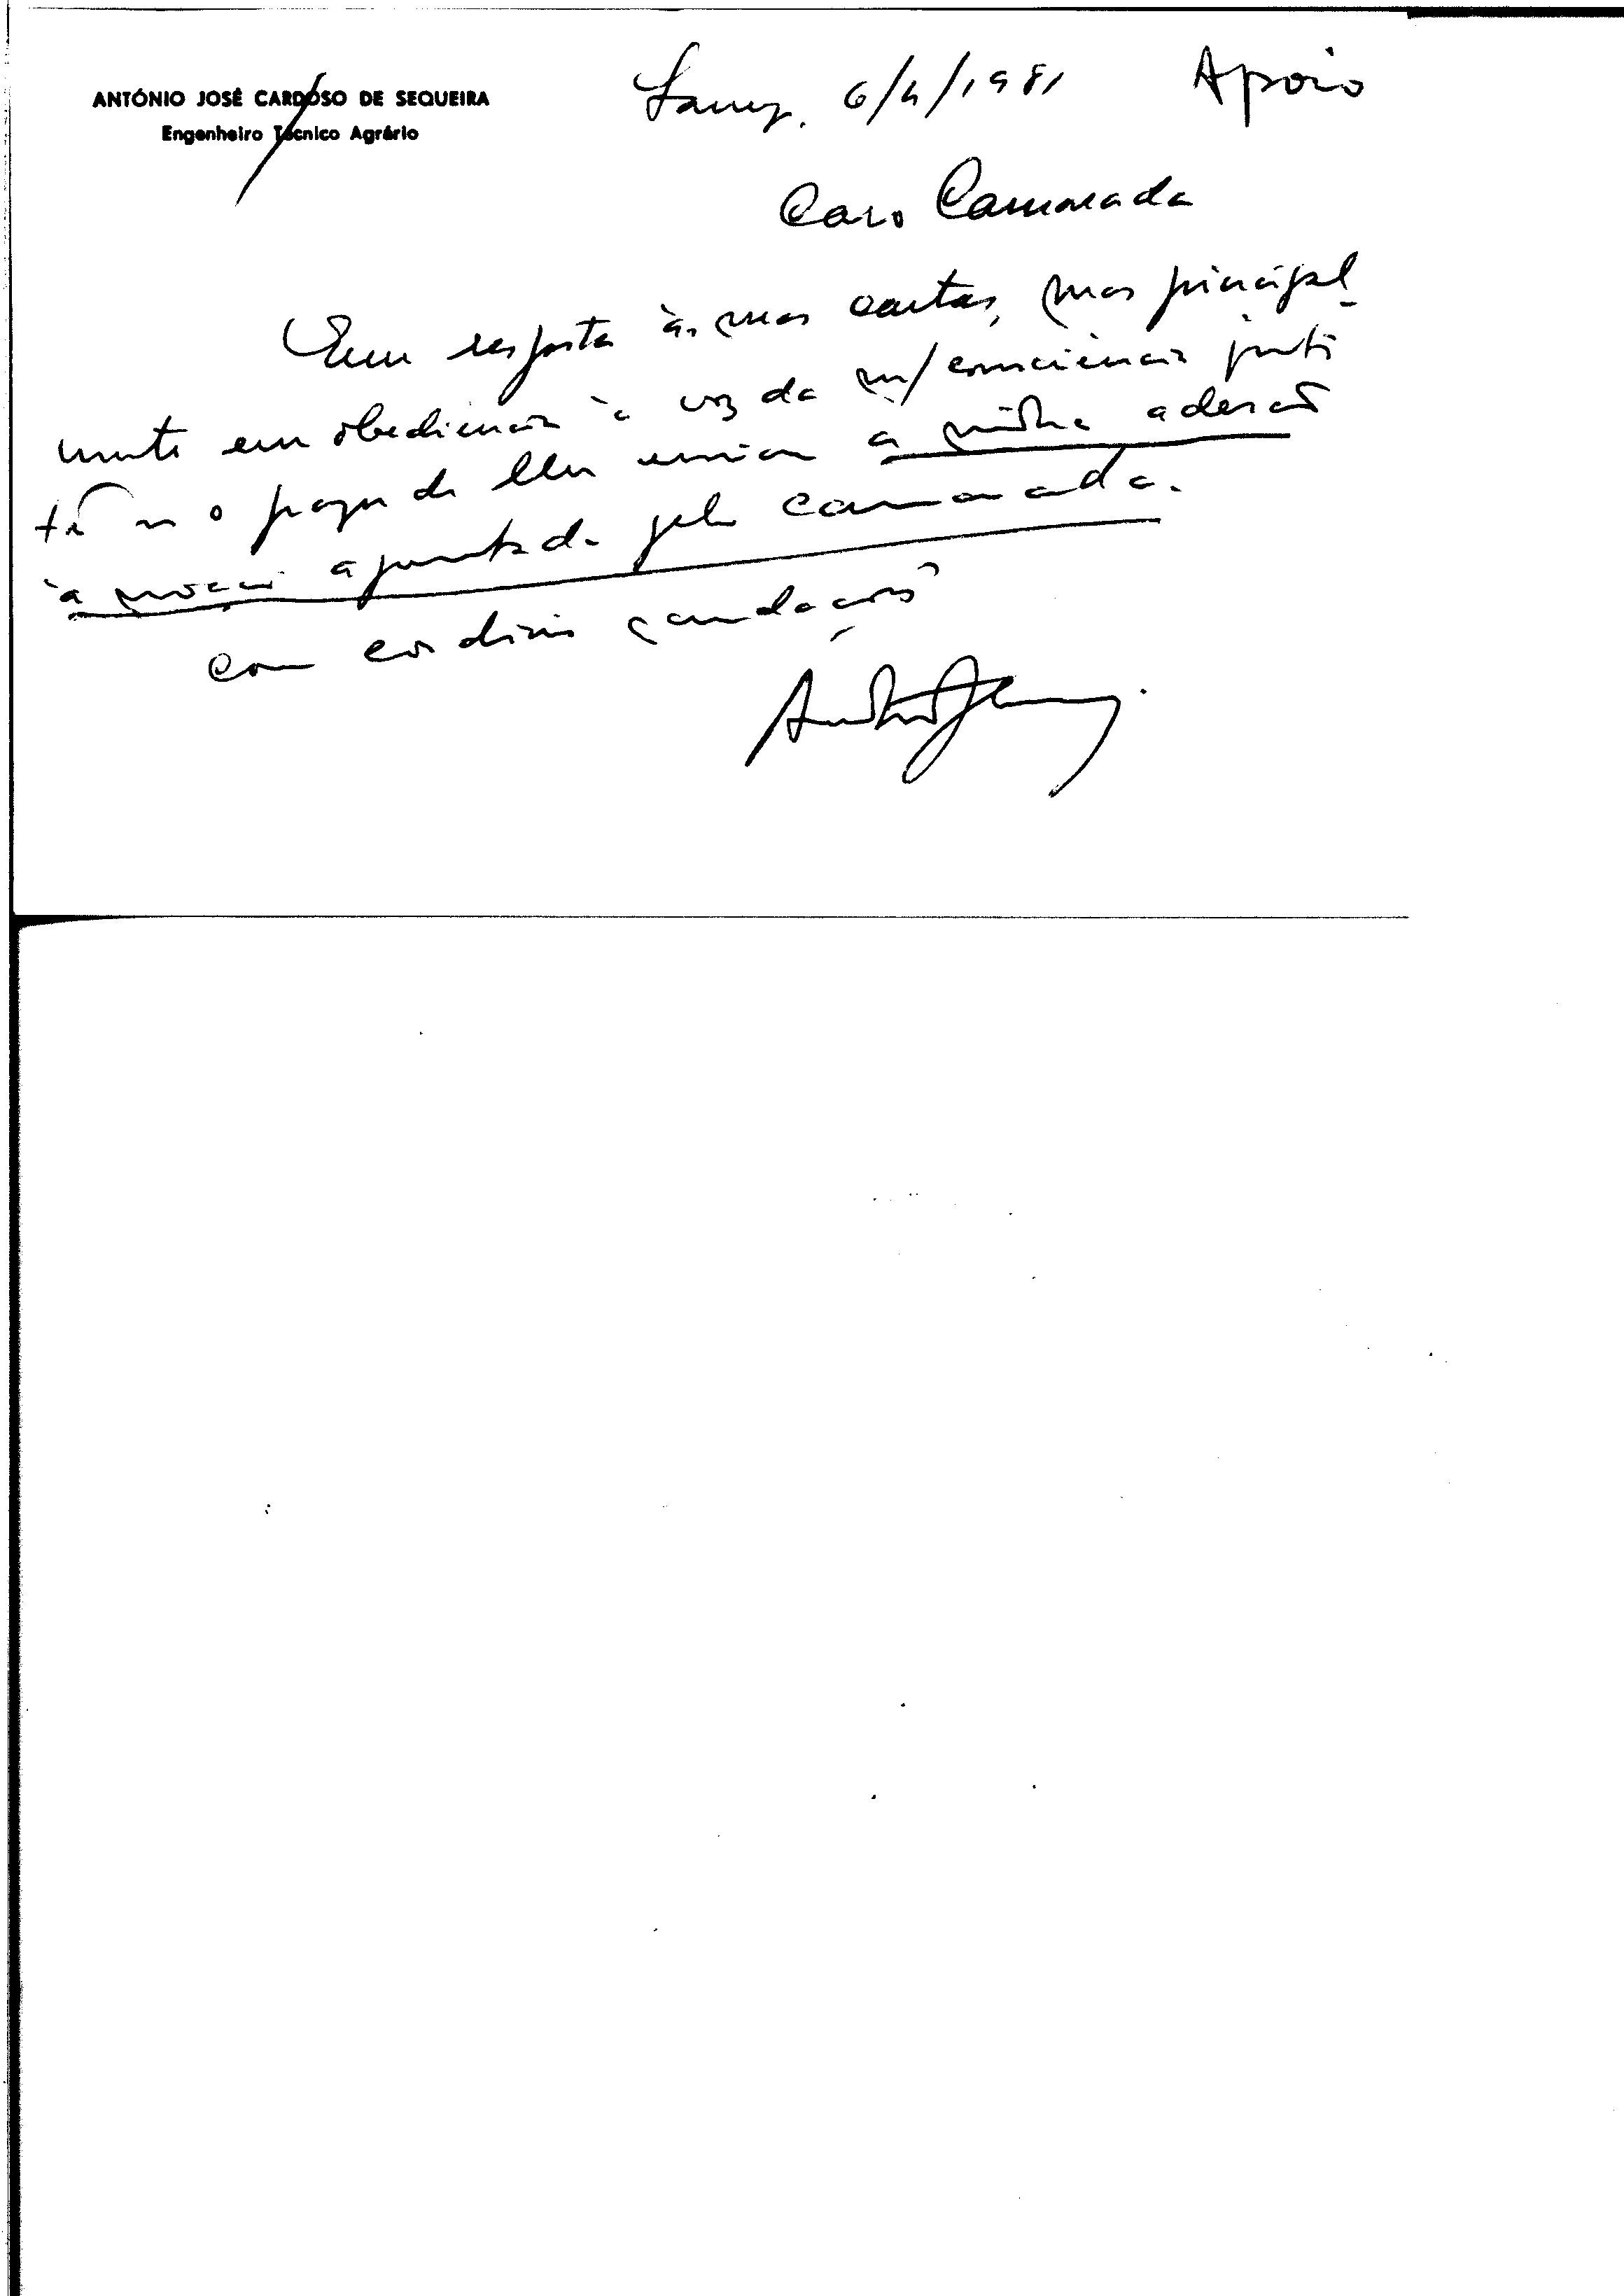 ANTÓNIO JOSÉ CARDOSO DE SEQUEIRA
Engenheiro Técnico Agrário
6/4/1981 Apoio
Caro Camarada
Em resposta às suas cartas, mas principal-
mente em obediência à voz da m/ consciência
o prazer de lhe enviar a minha adesão
à moção apresentada pelo camarada.
Com cordiais saudações